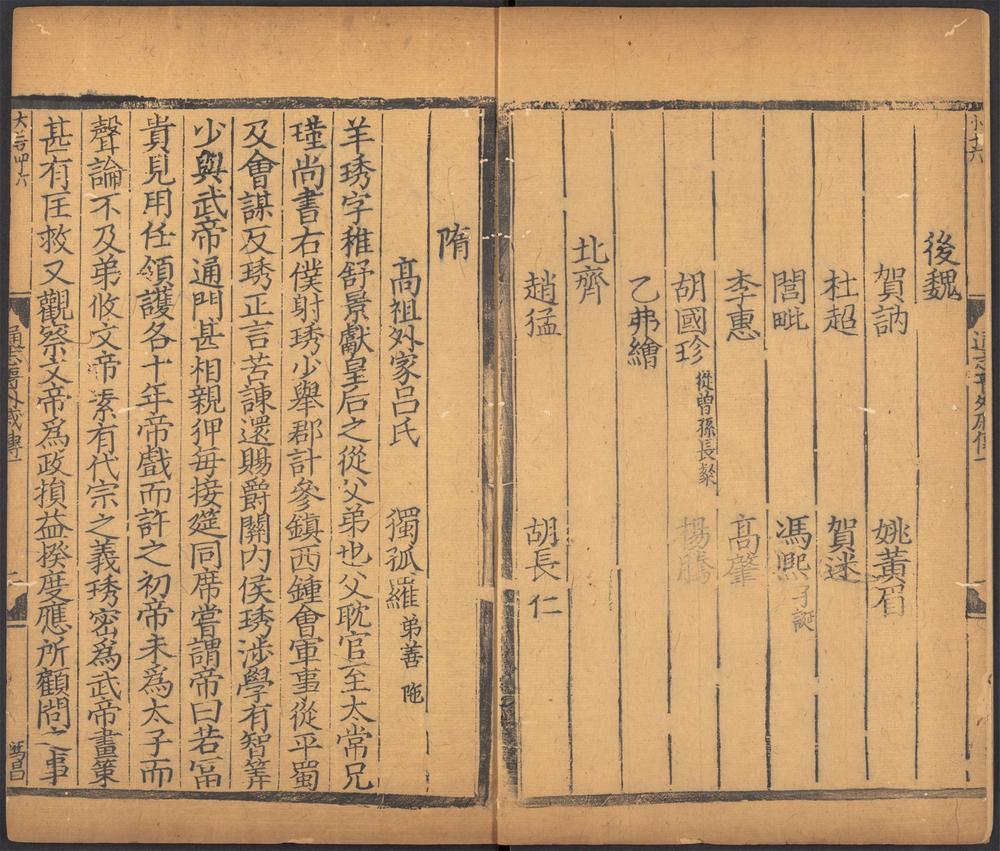 小十六
後魏
賀訥 姚黃眉
杜超 賀迷
閭毗 馮熙 子誕
李惠 高肇
胡國珍 從曾孫長粲 楊騰
乙弗繪
北齊
趙猛 胡長仁
隋
高祖外家呂氏 獨孤羅 弟善 陁
羊琇字稚舒景獻皇后之從父弟也父耽官至太常兄
瑾尚書右僕射琇少舉郡計參鎮西鍾會軍事從平蜀
及會謀反琇正言苦諫還賜爵關內侯琇涉學有智筭
少與武帝通門甚相親狎每接筵同席嘗謂帝曰若富
貴見用任領護各十年帝戲而許之初帝未為太子而
聲論不及弟攸文帝素有代宗之義琇密為武帝畫策
甚有匡救又觀察文帝為政損益揆度應所顧問之事
通志傳外戚傳一